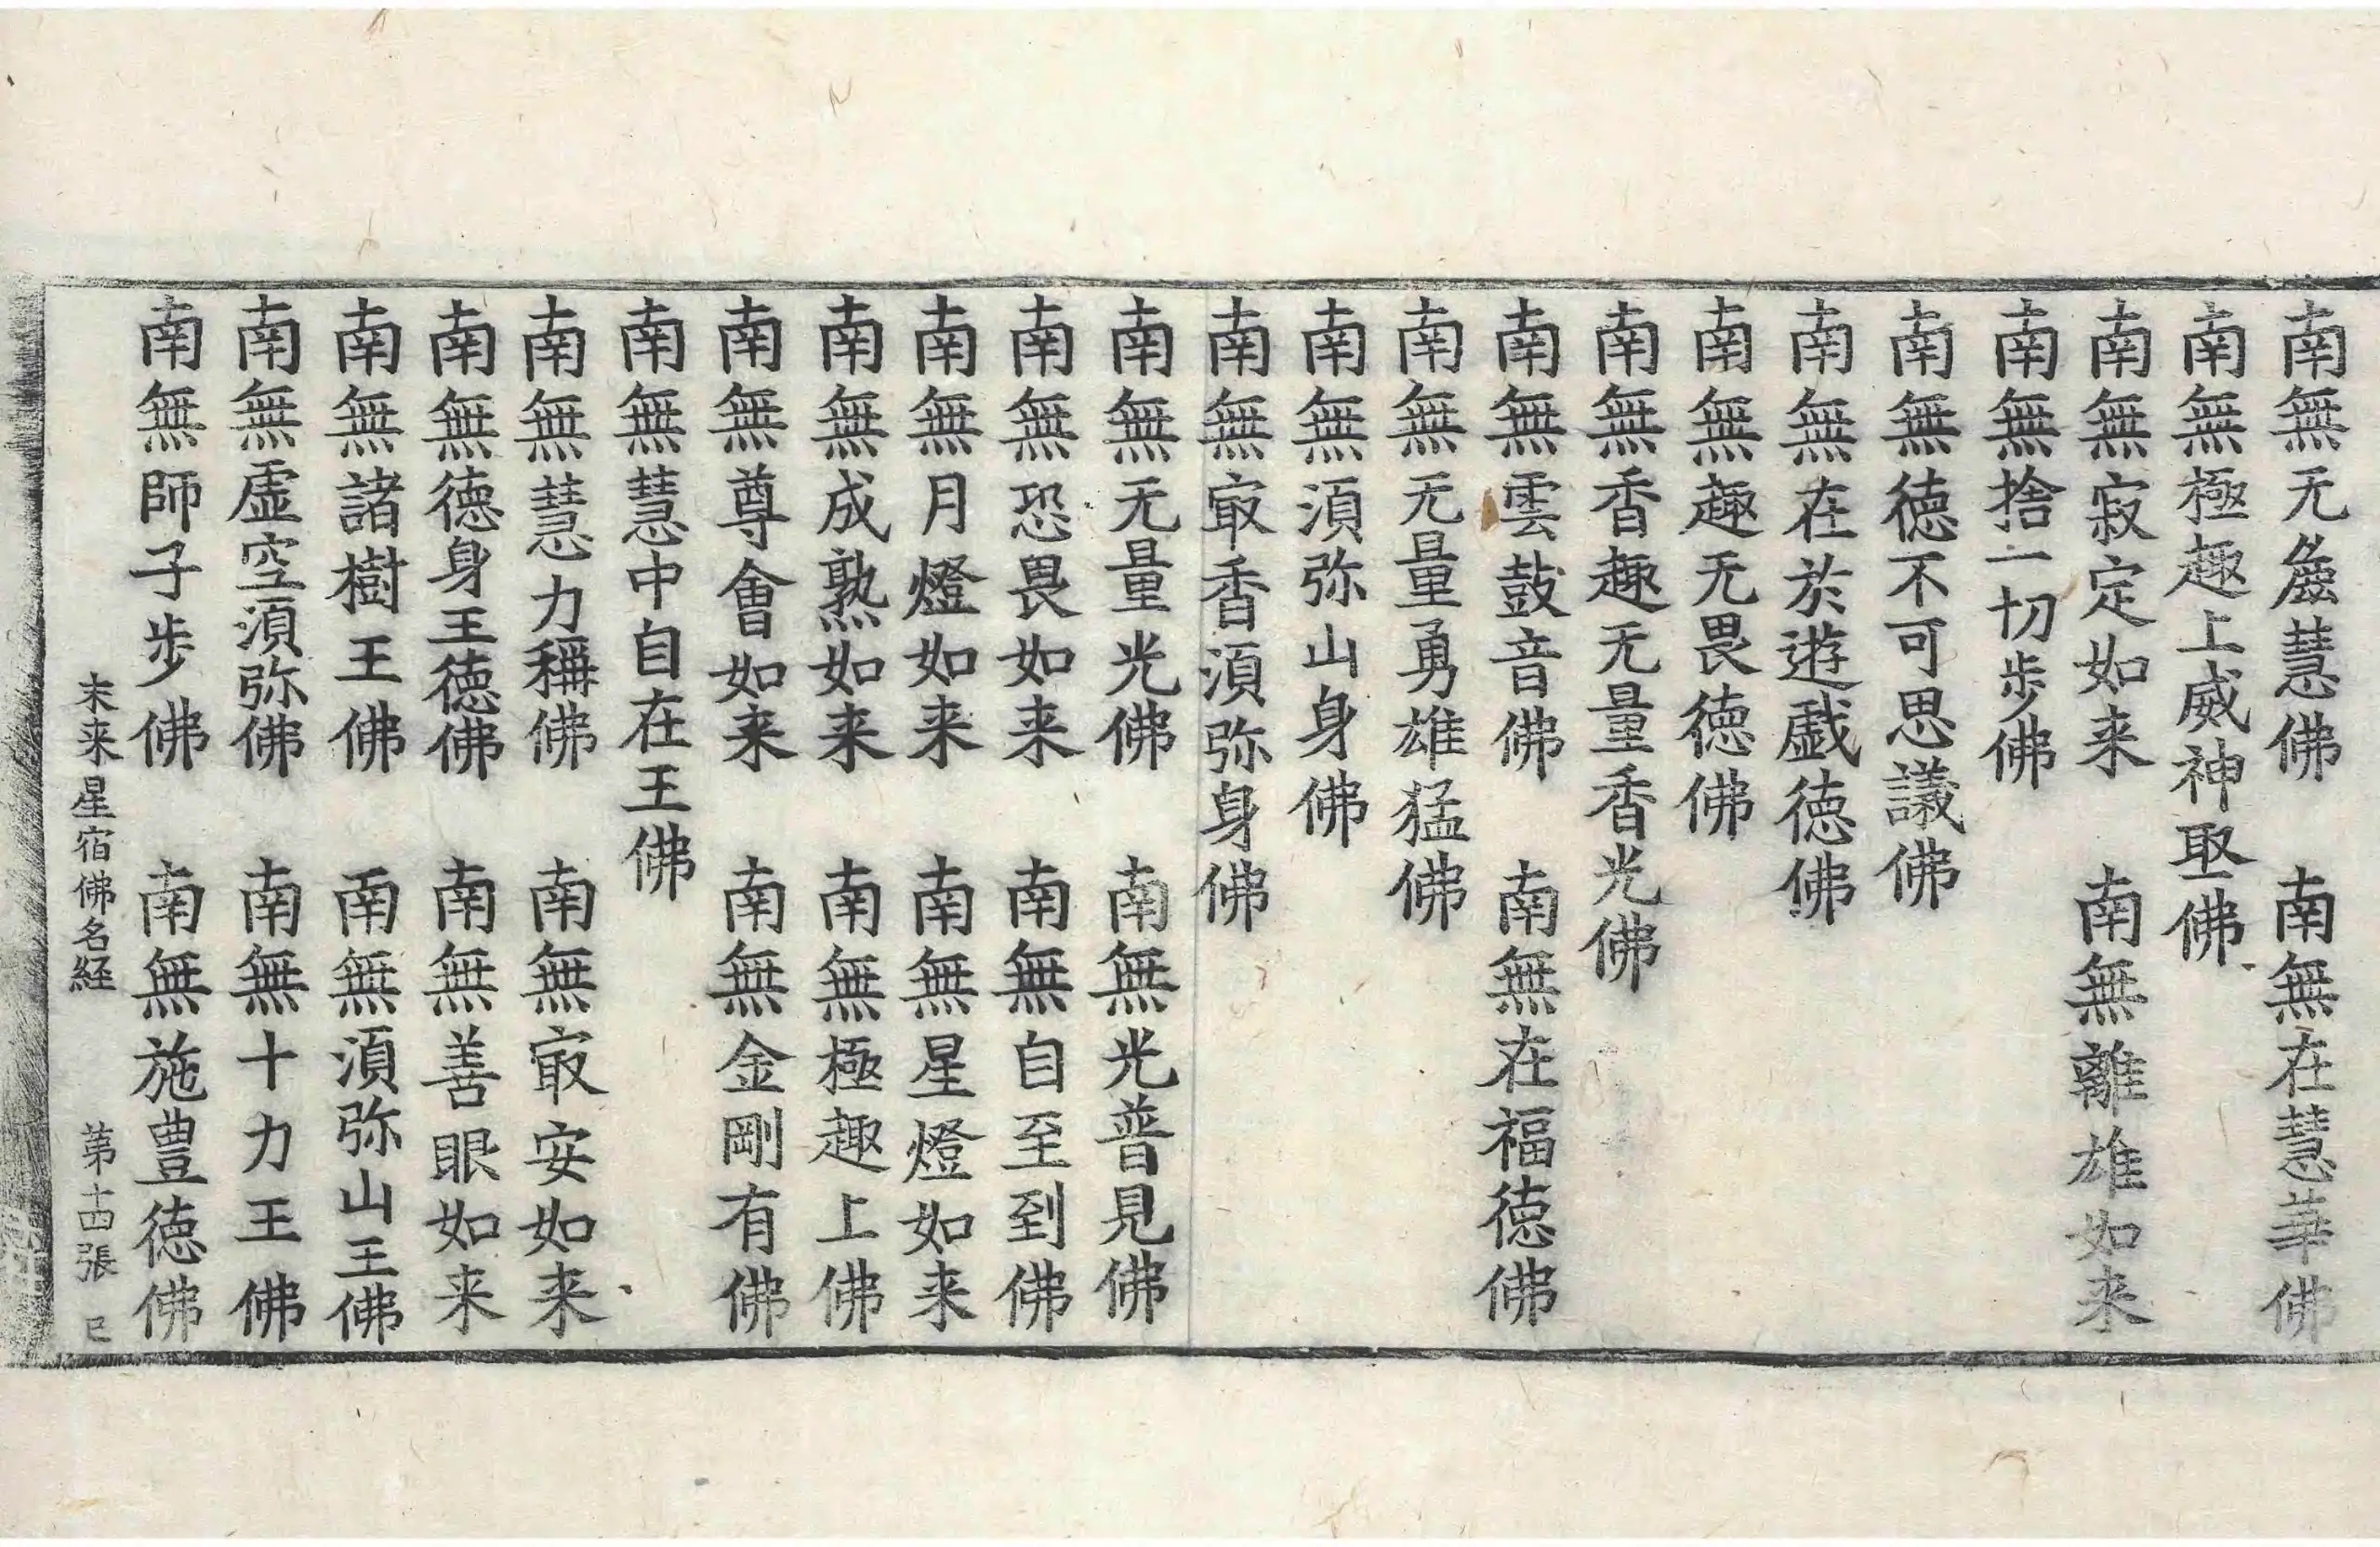 南無无㝵慧佛　南無在慧華佛
南無極趣上威神聖佛
南無寂定如来　南無離雄如来
南無捨一切步佛
南無德不可思議佛
南無在於遊戲德佛
南無趣无畏德佛
南無香趣无量香光佛
南無雲鼓音佛　南無在福德佛
南無无量勇雄猛佛
南無須弥山身佛
南無㝡香須弥身佛
南無无量光佛　南無光普見佛
南無恐畏如来　南無自至到佛
南無月燈如来　南無星燈如来
南無成熟如来　南無極趣上佛
南無尊會如来　南無金剛有佛
南無慧中自在王佛
南無慧力稱佛　南無㝡安如来
南無德身王德佛　南無善眼如来
南無諸樹王佛　南無須弥山王佛
南無虛空須弥佛　南無十力王佛
南無師子步佛　南無施豊德佛
未来星宿佛名経　第十四張　巳